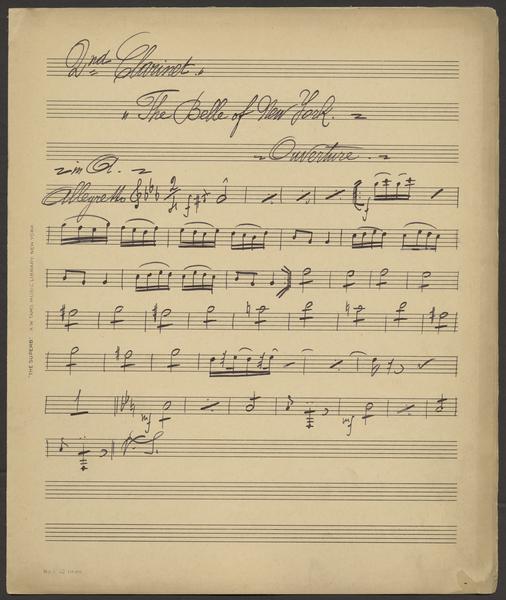 2nd Clarinet.
"The Belle of New York.
Ouverture.
in A.
Allegretto 2 4 f
f
1 mf mf
V.S.
"THE SUPERB" A.W. TAMS MUSIC LIBRARY, NEW YORK